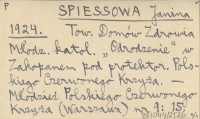 P
SPIESSOWA Janina
1924. Tow. Domów Zdrowia
Młodz. katol. „Odrodzenie" w
Zakopanem pod protektor. Pols-
kiego Czerwonego Krzyża. —
Młodzież Polskiego Czerwonego
Krzyża (Warszawa) nr. 9: 15.